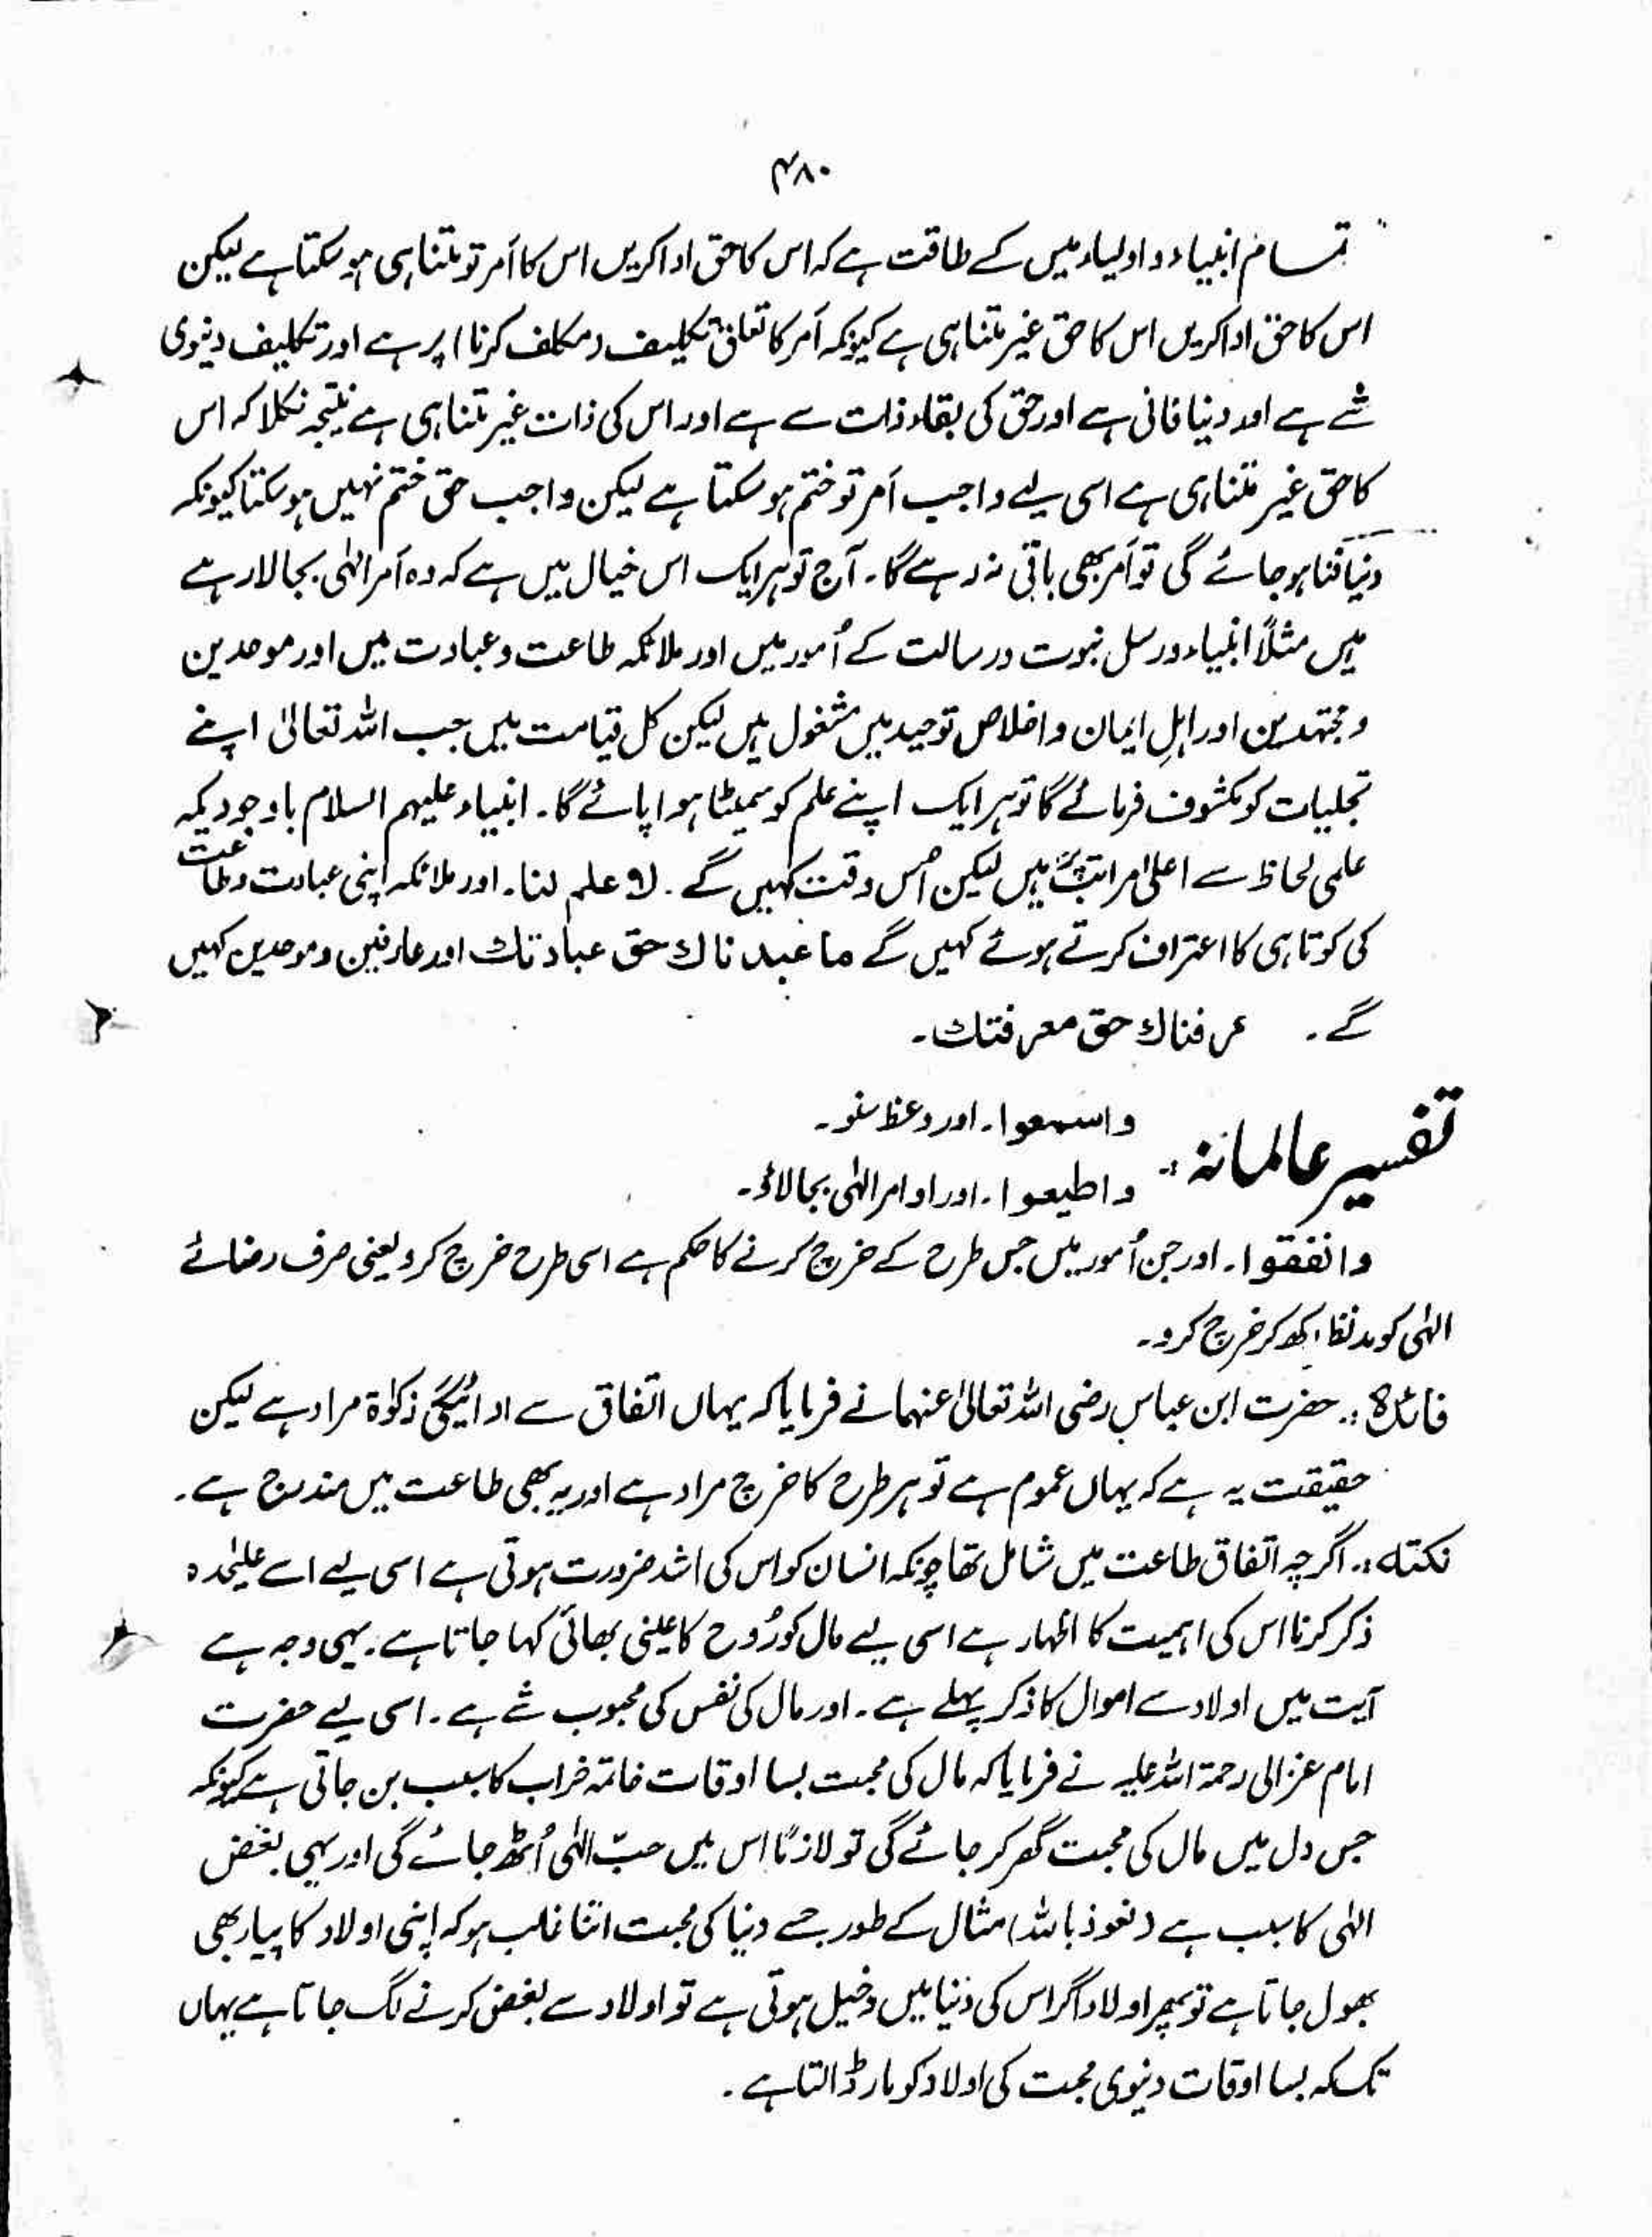 ۴۸۰
تمام انبیاء و اولیاء میں کے طاقت ہے کہ اس کا حق ادا کریں اس کا اَمر تو متناہی ہو سکتا ہے لیکن
اس کا حق ادا کریں اس کا حق غیر متناہی ہے کیونکہ اَمر کا تعلق تکلیف (مکلف کرنا) پر ہے اور تکلیف دنیوی
شے ہے اور دنیا فانی ہے اور حق کی بقاء ذات سے ہے اور اس کی ذات غیر متناہی ہے نتیجہ نکلا کہ اس
کا حق غیر متناہی ہے اسی لیے واجب اَمر تو ختم ہو سکتا ہے لیکن واجب حق ختم نہیں ہو سکتا کیونکہ
دنیا فنا ہو جائے گی تو اَمر بھی باقی نہ رہے گا۔ آج تو ہر ایک اس خیال میں ہے کہ وہ اَمر الٰہی بجا لا رہے
ہیں مثلاً انبیاء و رسل نبوت و رسالت کے اُمور میں اور ملائکہ طاعت و عبادت میں اور موحدین
و مجتہدین اور اہلِ ایمان و اخلاص توحید میں مشغول ہیں لیکن کل قیامت میں جب اللہ تعالیٰ اپنے
تجلیات کو مکشوف فرمائے گا تو ہر ایک اپنے علم کو سمیٹا ہوا پائے گا۔ انبیاء علیہم السلام باوجودیکہ
علمی لحاظ سے اعلیٰ مراتب پر ہیں لیکن اُس وقت کہیں گے۔ لا علم لنا۔ اور ملائکہ اپنی عبادت و طاعت
کی کوتاہی کا اعتراف کرتے ہوئے کہیں گے ما عبدناك حق عبادتك اور عارفین و موحدین کہیں
گے۔ عرفناك حق معرفتك۔
تفسیر عالمانہ :۔ واسمعوا۔ اور وعظ سنو۔
واطیعوا۔ اور اوامر الٰہی بجا لاؤ۔
وانفقوا۔ اور جن اُمور میں جس طرح کے خرچ کرنے کا حکم ہے اسی طرح خرچ کرو یعنی صرف رضائے
الٰہی کو مدنظر رکھ کر خرچ کرو۔
فائدہ :۔ حضرت ابن عباس رضی اللہ تعالیٰ عنہما نے فرمایا کہ یہاں اتفاق سے ادائیگی زکوٰۃ مراد ہے لیکن
حقیقت یہ ہے کہ یہاں عموم ہے تو ہر طرح کا خرچ مراد ہے اور یہ بھی طاعت میں مندرج ہے۔
نکتہ :۔ اگرچہ اتفاق طاعت میں شامل تھا چونکہ انسان کو اس کی اشد ضرورت ہوتی ہے اسی لیے اسے علیٰحدہ
ذکر کرنا اس کی اہمیت کا اظہار ہے اسی لیے مال کو رُوح کا عینی بھائی کہا جاتا ہے۔ یہی وجہ ہے
آیت میں اولاد سے اموال کا ذکر پہلے ہے۔ اور مال کی نفس کی محبوب شے ہے۔ اسی لیے حضرت
امام غزالی رحمۃ اللہ علیہ نے فرمایا کہ مال کی محبت بسا اوقات خاتمہ خراب کا سبب بن جاتی ہے کیونکہ
جس دل میں مال کی محبت گھر کر جائے گی تو لازمًا اس میں حبِّ الٰہی اُٹھ جائے گی اور یہی بغض
الٰہی کا سبب ہے (نعوذ باللہ) مثال کے طور جسے دنیا کی محبت اتنا غالب ہو کہ اپنی اولاد کا پیار بھی
بھول جاتا ہے تو پھر اولاد اگر اس کی دُنیا میں دخیل ہوتی ہے تو اولاد سے بغض کرنے لگ جاتا ہے یہاں
تک کہ بسا اوقات دنیوی محبت کی اولاد کو مار ڈالتا ہے۔